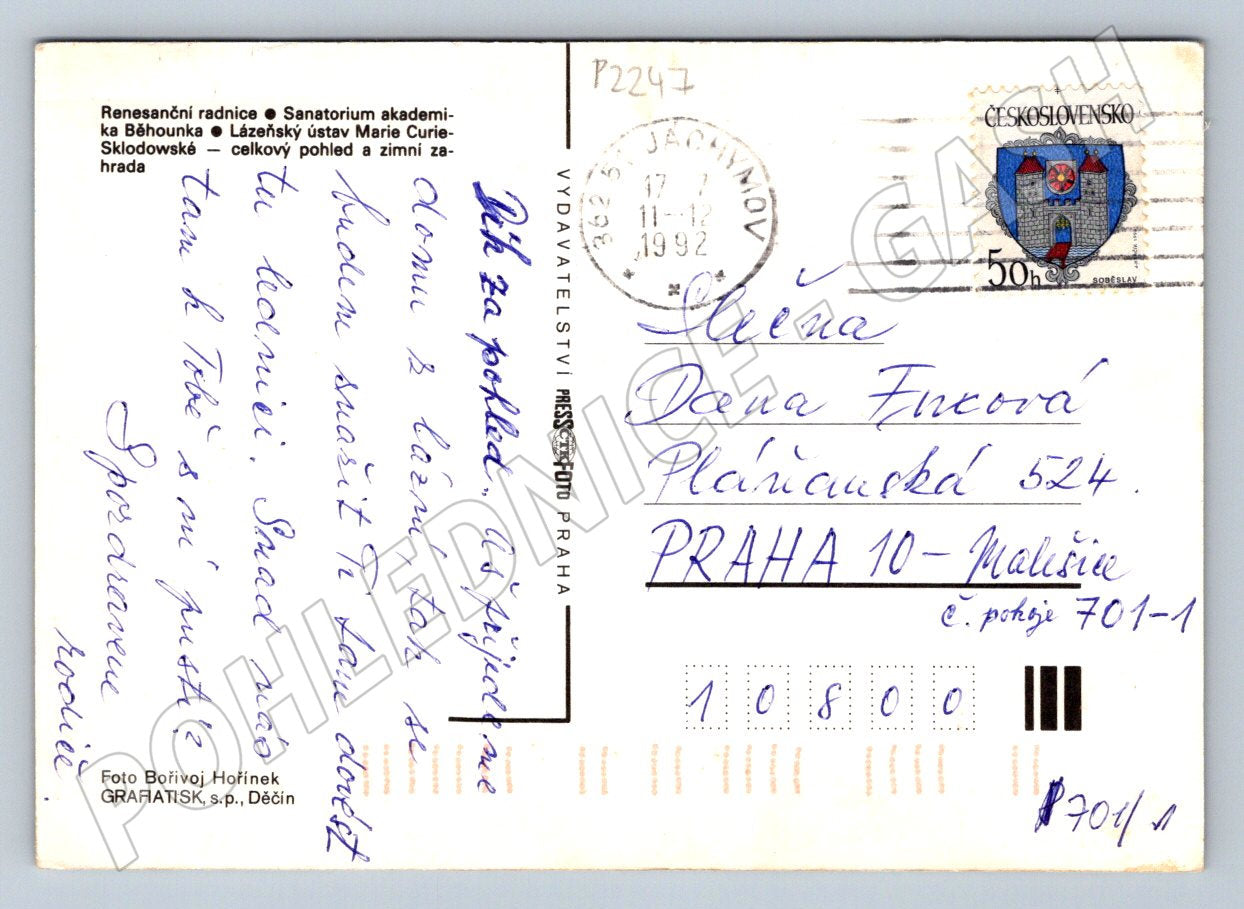 P2247
Renesanční radnice ● Sanatorium akademi-
ka Běhounka ● Lázeňský ústav Marie Curie-
Sklodowské — celkový pohled a zimní za-
hrada
Dík za pohled. Až přijdeme
domů z lázní, tak se
budem snažit Ti tam dovést
tu lednici. Snad nás
tam k Tobě s ní pustí?
S pozdravem
rodiče
Foto Bořivoj Hořínek
GRAFIATISK, s.p., Děčín
VYDAVATELSTVÍ PRESSFOTO PRAHA
ČTK
362 51 JÁCHYMOV
17. 7
11-12
1992
ČESKOSLOVENSKO
50h
SOBĚSLAV
Slečna
Dana
Pláňanská 524.
PRAHA 10 - Malešice
č. pokoje 701-1
10800
P701/1
POHLEDNICE - GASH